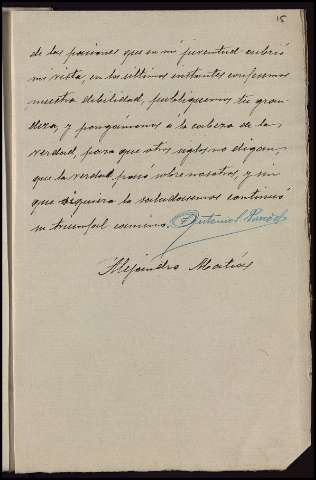 15
de las pasiones que en mi juventud cubrió
mi vista, en los últimos instantes confesemos
nuestra debilidad, publiquemos tu gran-
deza, y pongámonos á la cabeza de la
verdad, para que otros siglos no digan,
que la verdad pasó sobre nosotros, y sin
que siquiera la saludásemos continuó
su triunfal camino. Antonio L.
Alejandro Matías